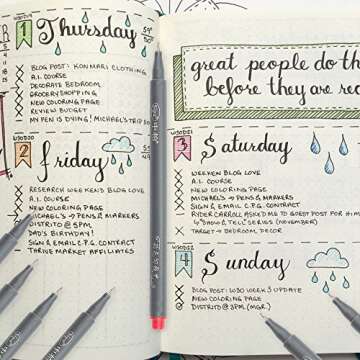 1 Thursday 54°
BLOG POST: KONMARI CLOTHING
A.I. COURSE
DECORATE BEDROOM
GROCERY SHOPPING
NEW COLORING PAGE
REVIEW BUDGET
MY PEN IS DYING! MICHAEL'S TRIP SO
W30D20
2 friday
RESEARCH WEEKEND BLOG LOVE
A.I. COURSE
NEW COLORING PAGE
MICHAEL'S → PENS & MARKERS
DISTRITO @ 5PM
DAD'S BIRTHDAY!
SIGN & EMAIL C.P.G. CONTRACT
THRIVE MARKET AFFILIATES
great people do th
before they are re
W30D21
3 Saturday
WEEKEN BLOG LOVE
A.I. COURSE
NEW COLORING PAGE
MICHAEL'S → PENS & MARKERS
SIGN & EMAIL C.P.G. CONTRACT
RIDER CARROLL ASKED ME TO GUEST POST FOR HIM
↳ "SHOW & TELL" SERIES (NOVEMBER)
TARGET → BEDROOM DECOR
W30D22
4 Sunday
BLOG POST: W30 WEEK 3 UPDATE
NEW COLORING PAGE
DISTRITO @ 3PM (MGR.)